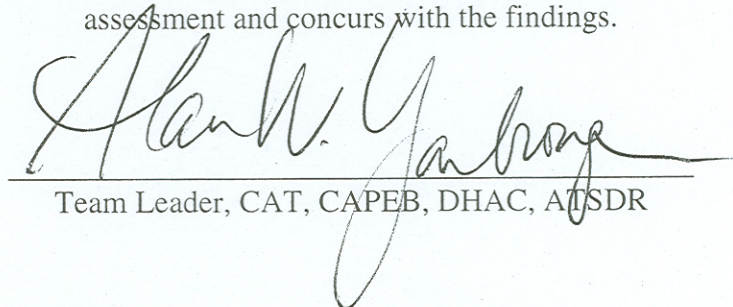 assessment and concurs with the findings.
Alan W. Yarbrough
Team Leader, CAT, CAPEB, DHAC, ATSDR